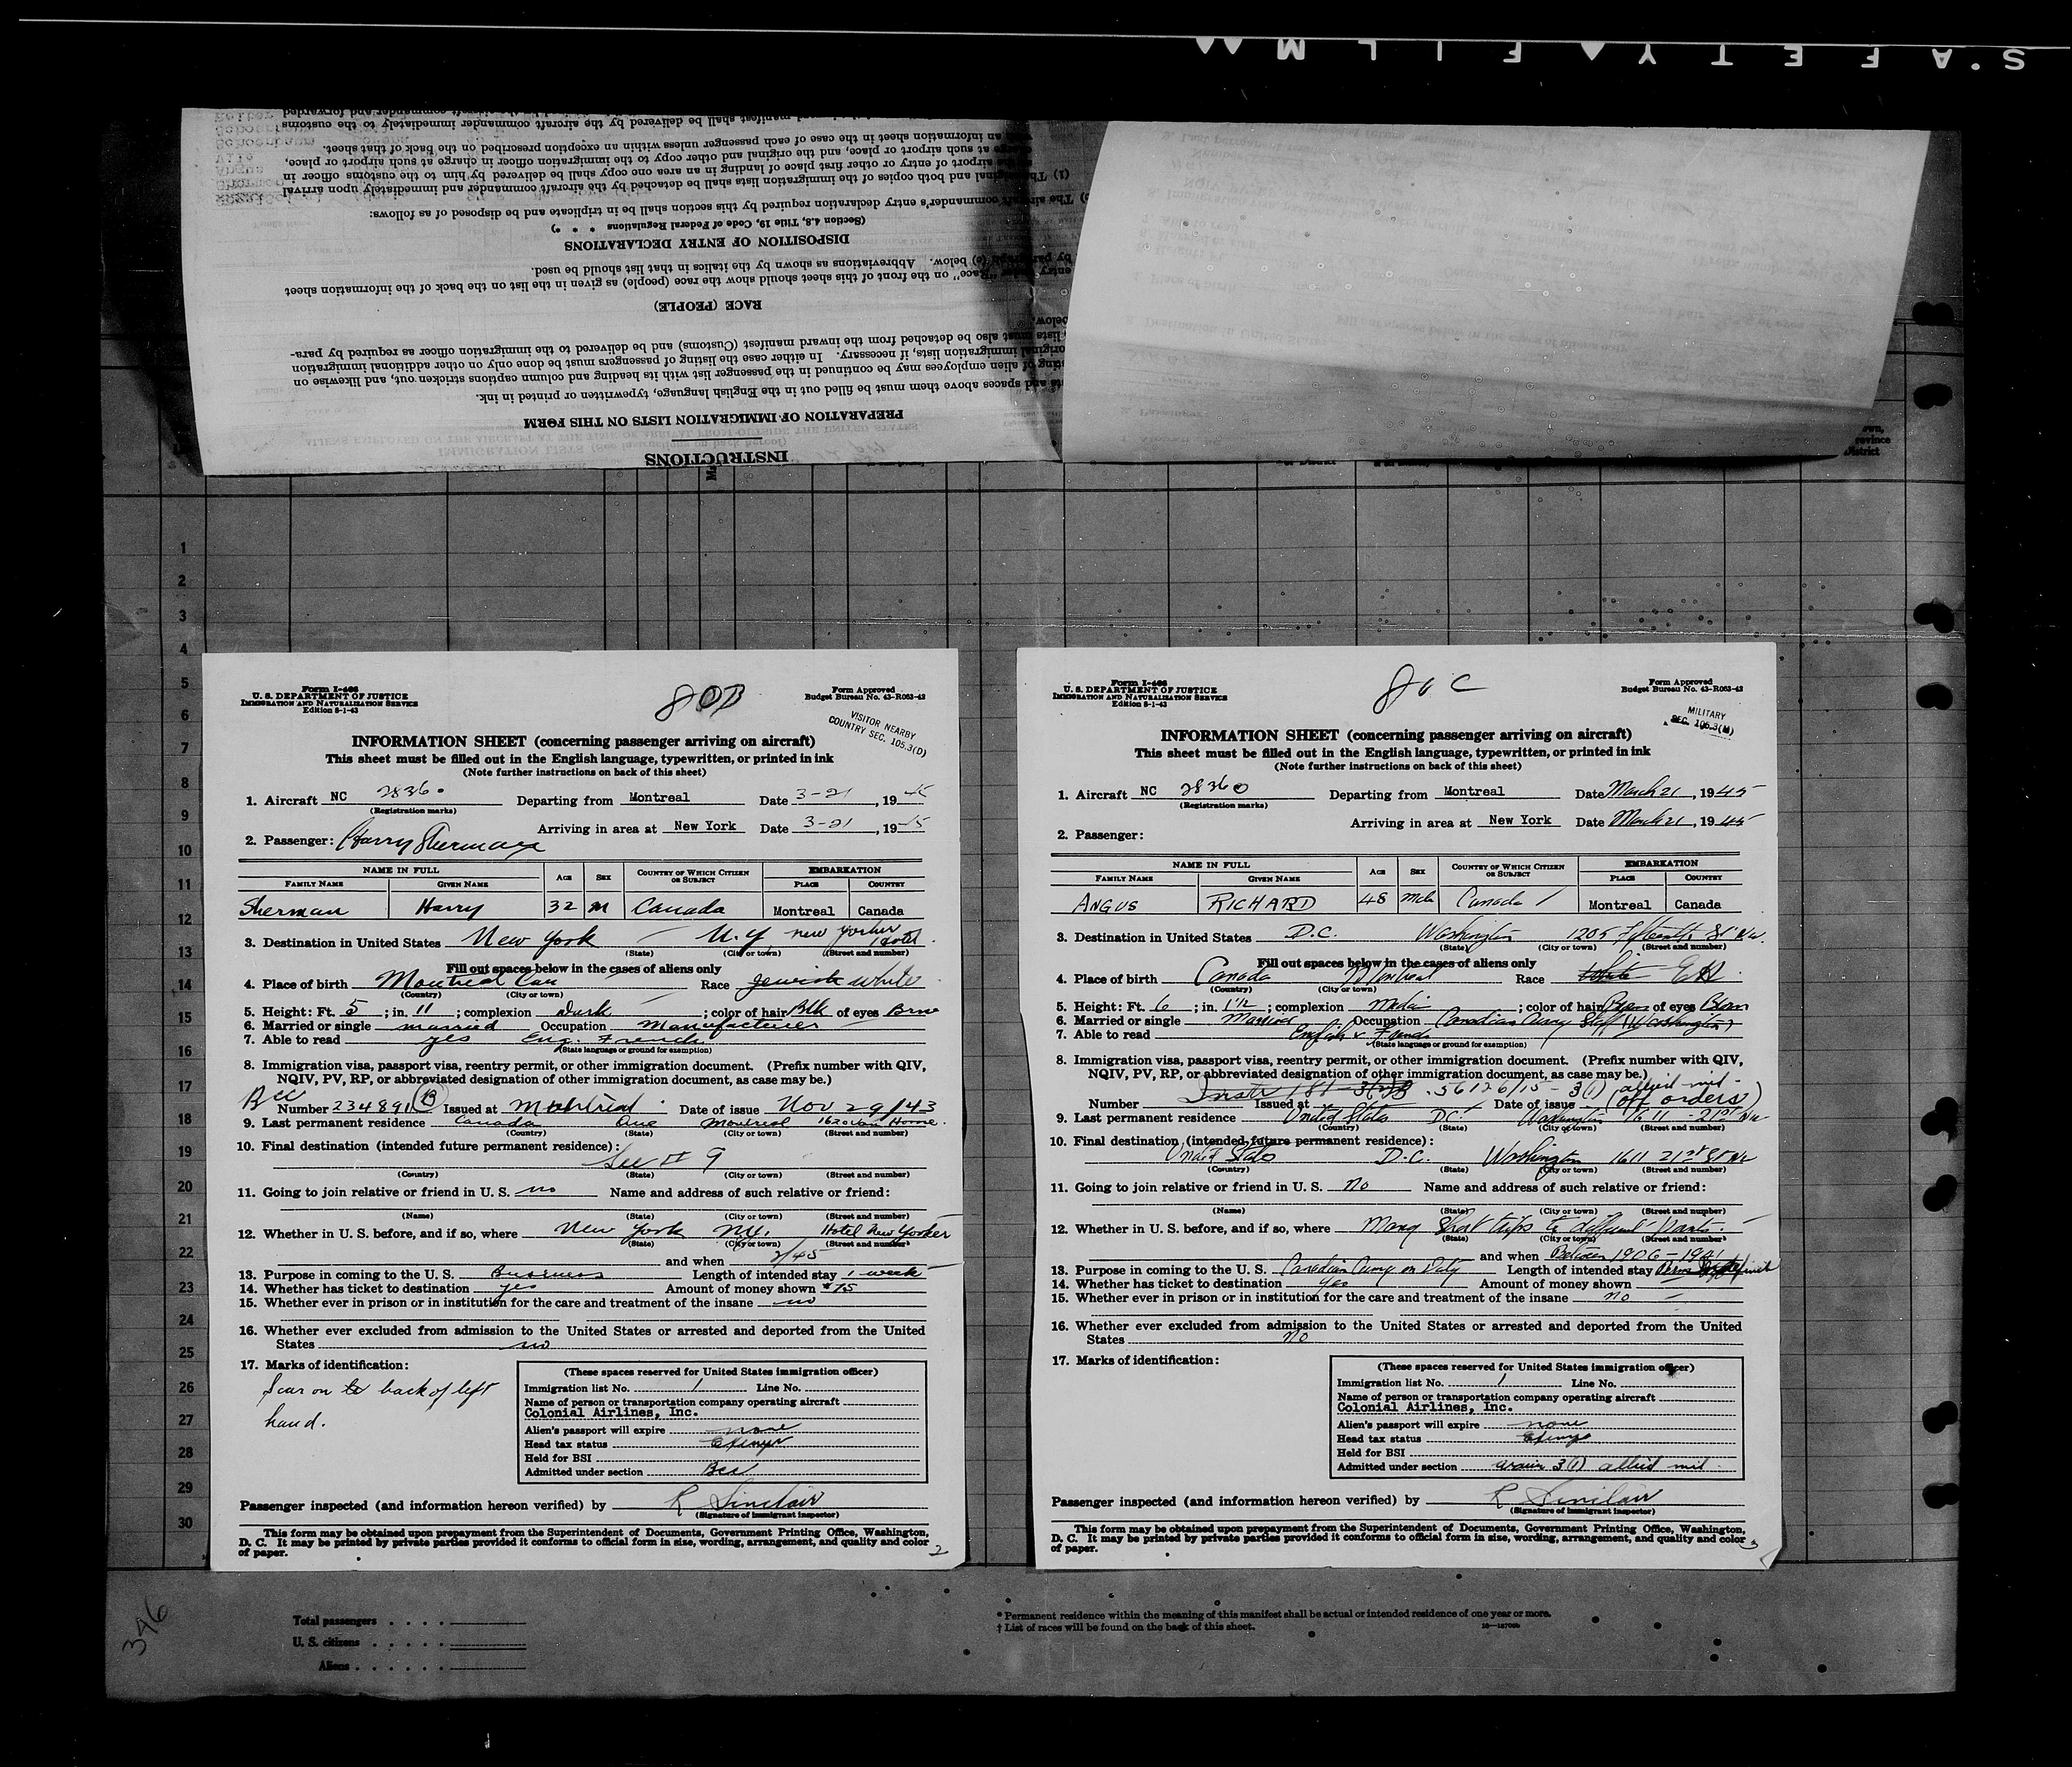 SAFETY FILM
manifest shall be delivered by the aircraft commander immediately to the customs
an information sheet in the case of each passenger unless within an exception prescribed on the back of that sheet.
at such airport or place, and the original and other copy to the immigration officer in charge at such airport or place,
airport of entry or other first place of landing in an area one copy shall be delivered by him to the customs officer in
(1) The original and both copies of the immigration lists shall be detached by the aircraft commander and immediately upon arrival
The aircraft commander's entry declaration required by this section shall be in triplicate and be disposed of as follows:
(Section 4.8, Title 19, Code of Federal Regulations * * *)
DISPOSITION OF ENTRY DECLARATIONS
by paragraph (c) below. Abbreviations as shown by the italics in that list should be used.
entry under "Race" on the front of this sheet should show the race (people) as given in the list on the back of the information sheet
RACE (PEOPLE)
below.
lists must also be detached from the inward manifest (Customs) and be delivered to the immigration officer as required by para-
original immigration lists, if necessary. In either case the listing of passengers must be done only on other additional immigration
listing of alien employees may be continued in the passenger list with its heading and column captions stricken out, and likewise on
and spaces above them must be filled out in the English language, typewritten or printed in ink.
PREPARATION OF IMMIGRATION LISTS ON THIS FORM
INSTRUCTIONS
1
2
3
4
5
6
7
8
9
10
11
12
13
14
15
16
17
18
19
20
21
22
23
24
25
26
27
28
29
30
Form I-466
U. S. DEPARTMENT OF JUSTICE
IMMIGRATION AND NATURALIZATION SERVICE
Edition 8-1-43
80B
Form Approved
Budget Bureau No. 43-R063-42
VISITOR NEARBY
COUNTRY SEC. 105.3(D)
INFORMATION SHEET (concerning passenger arriving on aircraft)
This sheet must be filled out in the English language, typewritten, or printed in ink
(Note further instructions on back of this sheet)
1. Aircraft NC 28360 Departing from Montreal Date 3-21, 1945
(Registration marks)
Arriving in area at New York Date 3-21, 1945
2. Passenger: Harry Sherman
NAME IN FULL AGE SEX COUNTRY OF WHICH CITIZEN OR SUBJECT EMBARKATION
FAMILY NAME GIVEN NAME PLACE COUNTRY
Sherman Harry 32 M Canada Montreal Canada
3. Destination in United States New York N.Y. new yorker Hotel
(State) (City or town) (Street and number)
Fill out spaces below in the cases of aliens only
4. Place of birth Montreal Can Race Jewish White
(Country) (City or town)
5. Height: Ft. 5; in. 11; complexion Dark; color of hair Blk of eyes Brn
6. Married or single married Occupation Manufacturer
7. Able to read yes Eng. French
(State language or ground for exemption)
8. Immigration visa, passport visa, reentry permit, or other immigration document. (Prefix number with QIV,
NQIV, PV, RP, or abbreviated designation of other immigration document, as case may be.)
BCC
Number 234891 B Issued at Montreal Date of issue Nov 29/43
9. Last permanent residence Canada Que Montreal
(Country) (State) (City or town) (Street and number)
10. Final destination (intended future permanent residence):
See # 9
(Country) (State) (City or town) (Street and number)
11. Going to join relative or friend in U. S. no Name and address of such relative or friend:
(Name) (State) (City or town) (Street and number)
12. Whether in U. S. before, and if so, where New York N.Y. Hotel New Yorker
(State) (City or town) (Street and number)
and when 2/45
13. Purpose in coming to the U. S. Business Length of intended stay 1 week
14. Whether has ticket to destination yes Amount of money shown $75
15. Whether ever in prison or in institution for the care and treatment of the insane no
16. Whether ever excluded from admission to the United States or arrested and deported from the United
States no
17. Marks of identification:
Scar on back of left
hand.
(These spaces reserved for United States immigration officer)
Immigration list No. 1 Line No.
Name of person or transportation company operating aircraft
Colonial Airlines, Inc.
Alien's passport will expire none
Head tax status Exempt
Held for BSI
Admitted under section BCC
Passenger inspected (and information hereon verified) by R Sinclair
(Signature of immigrant inspector)
This form may be obtained upon prepayment from the Superintendent of Documents, Government Printing Office, Washington,
D. C. It may be printed by private parties provided it conforms to official form in size, wording, arrangement, and quality and color
of paper.
2
Form I-466
U. S. DEPARTMENT OF JUSTICE
IMMIGRATION AND NATURALIZATION SERVICE
Edition 8-1-43
80C
Form Approved
Budget Bureau No. 43-R063-42
MILITARY
SEC. 105.3(M)
INFORMATION SHEET (concerning passenger arriving on aircraft)
This sheet must be filled out in the English language, typewritten, or printed in ink
(Note further instructions on back of this sheet)
1. Aircraft NC 28360 Departing from Montreal Date March 21, 1945
(Registration marks)
Arriving in area at New York Date March 21, 1945
2. Passenger:
NAME IN FULL AGE SEX COUNTRY OF WHICH CITIZEN OR SUBJECT EMBARKATION
FAMILY NAME GIVEN NAME PLACE COUNTRY
ANGUS RICHARD 48 Male Canada Montreal Canada
3. Destination in United States D.C. Washington 1205 Fifteenth St NW.
(State) (City or town) (Street and number)
Fill out spaces below in the cases of aliens only
4. Place of birth Canada Montreal Race White
(Country) (City or town)
5. Height: Ft. 6; in. 1 1/2; complexion Medium; color of hair Brown of eyes Brown
6. Married or single Married Occupation Canadian Army Staff (Washington)
7. Able to read English & French
(State language or ground for exemption)
8. Immigration visa, passport visa, reentry permit, or other immigration document. (Prefix number with QIV,
NQIV, PV, RP, or abbreviated designation of other immigration document, as case may be.)
Instr 181 56126/15 - 3(1) allied mil -
Number Issued at Date of issue (off orders)
9. Last permanent residence United States D.C. Washington 1611 - 21st NW
(Country) (State) (City or town) (Street and number)
10. Final destination (intended future permanent residence):
United States D.C. Washington 1611 21st St NW
(Country) (State) (City or town) (Street and number)
11. Going to join relative or friend in U. S. No Name and address of such relative or friend:
(Name) (State) (City or town) (Street and number)
12. Whether in U. S. before, and if so, where Many Short trips to different Parts.
(State) (City or town) (Street and number)
and when Between 1906 - 1941
13. Purpose in coming to the U. S. Canadian Army on Duty Length of intended stay
14. Whether has ticket to destination Yes Amount of money shown
15. Whether ever in prison or in institution for the care and treatment of the insane no
16. Whether ever excluded from admission to the United States or arrested and deported from the United
States no
17. Marks of identification:
(These spaces reserved for United States immigration officer)
Immigration list No. 1 Line No.
Name of person or transportation company operating aircraft
Colonial Airlines, Inc.
Alien's passport will expire none
Head tax status Exempt
Held for BSI
Admitted under section 3(1) allied mil
Passenger inspected (and information hereon verified) by R Sinclair
(Signature of immigrant inspector)
This form may be obtained upon prepayment from the Superintendent of Documents, Government Printing Office, Washington,
D. C. It may be printed by private parties provided it conforms to official form in size, wording, arrangement, and quality and color
of paper.
3
396
Total passengers
U. S. citizens
Aliens
* Permanent residence within the meaning of this manifest shall be actual or intended residence of one year or more.
† List of races will be found on the back of this sheet.